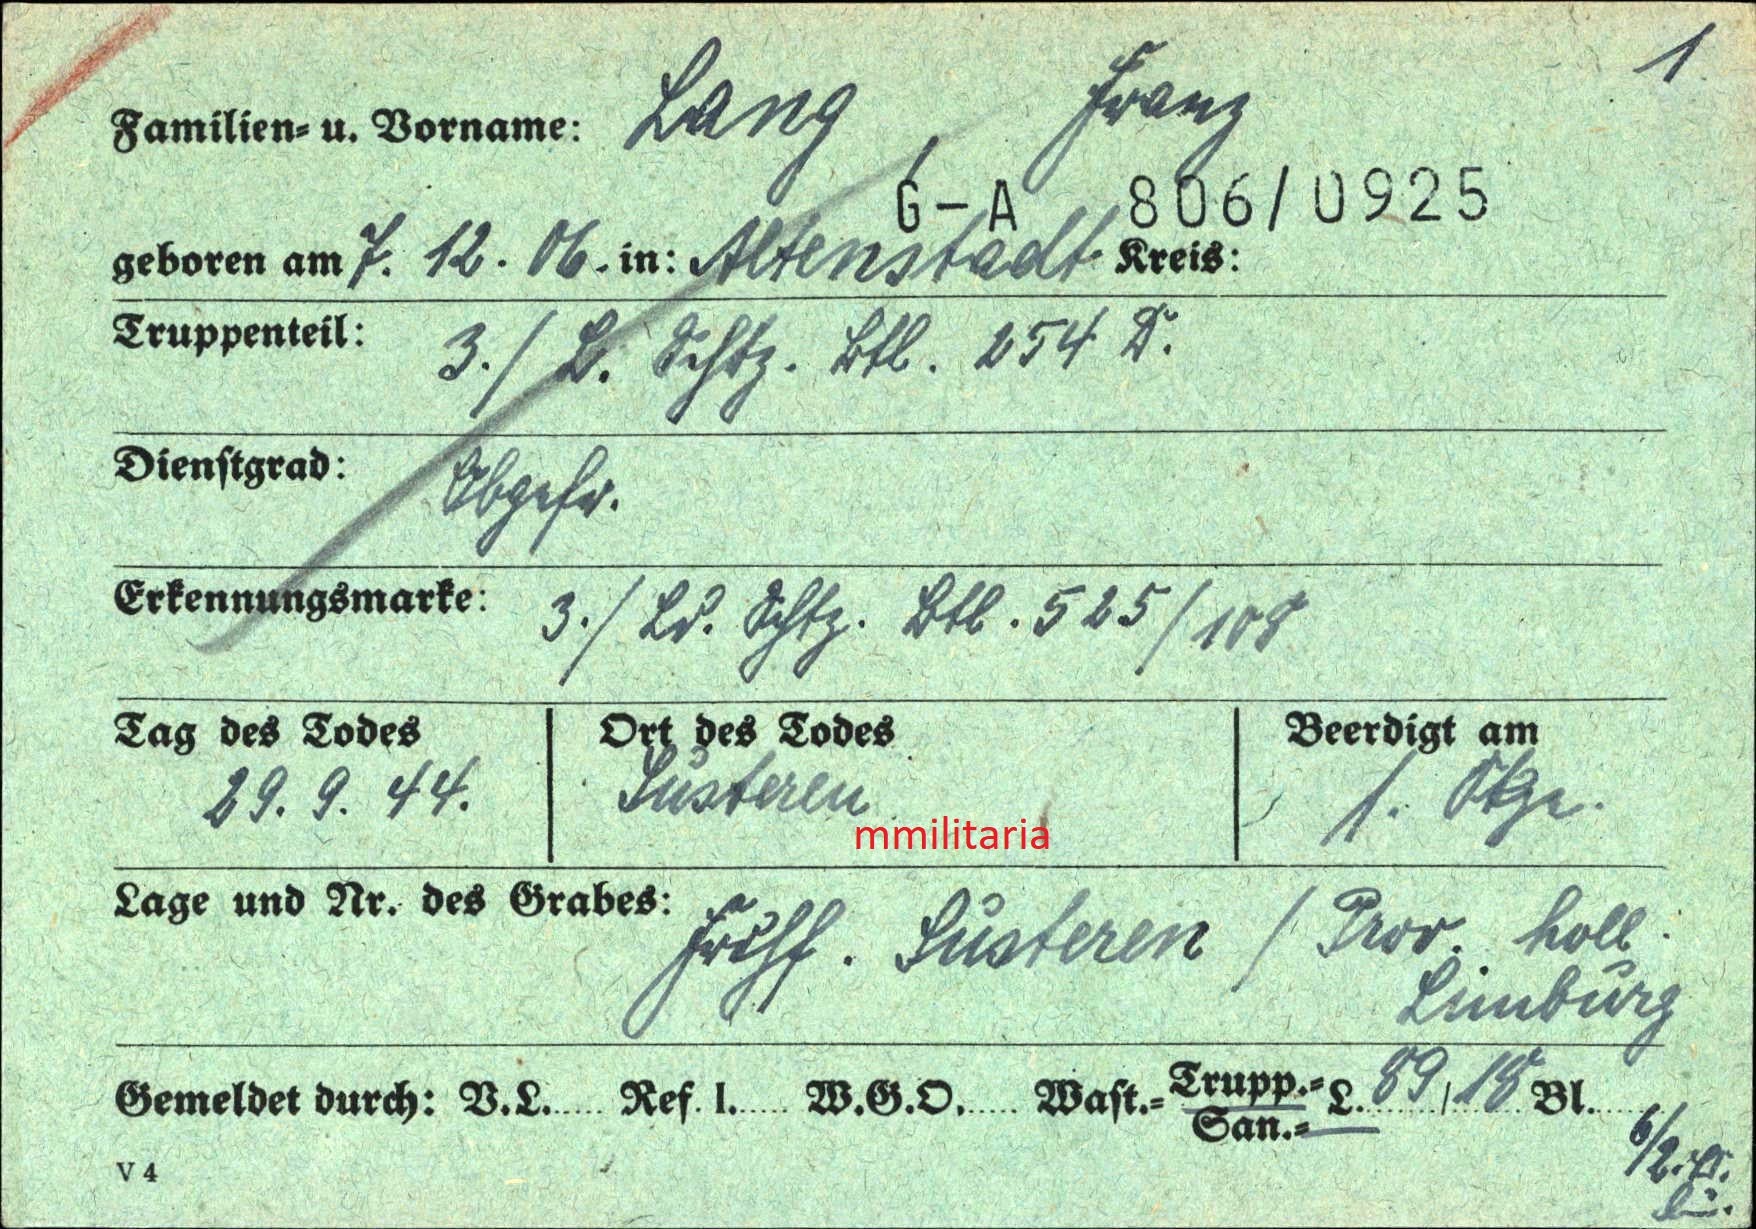 1
Familien- u. Vorname: Lang Franz
G-A 806/0925
geboren am 7. 12. 06. in: Altenstadt Kreis:
Truppenteil: 3./ L. Schtz. Btl. 254 D.
Dienstgrad: Obgefr.
Erkennungsmarke: 3./ Ld. Schtz. Btl. 525/108
Tag des Todes Ort des Todes Beerdigt am
29. 9. 44. Süsteren 1. Okt.
mmilitaria
Lage und Nr. des Grabes: Frdhf. Süsteren / Prov. holl.
Limburg
Gemeldet durch: V.L. Ref. I. W.G.O. Wast.- Trupp.- L. 89 / 18 Bl.
San.-
6/2.
V 4